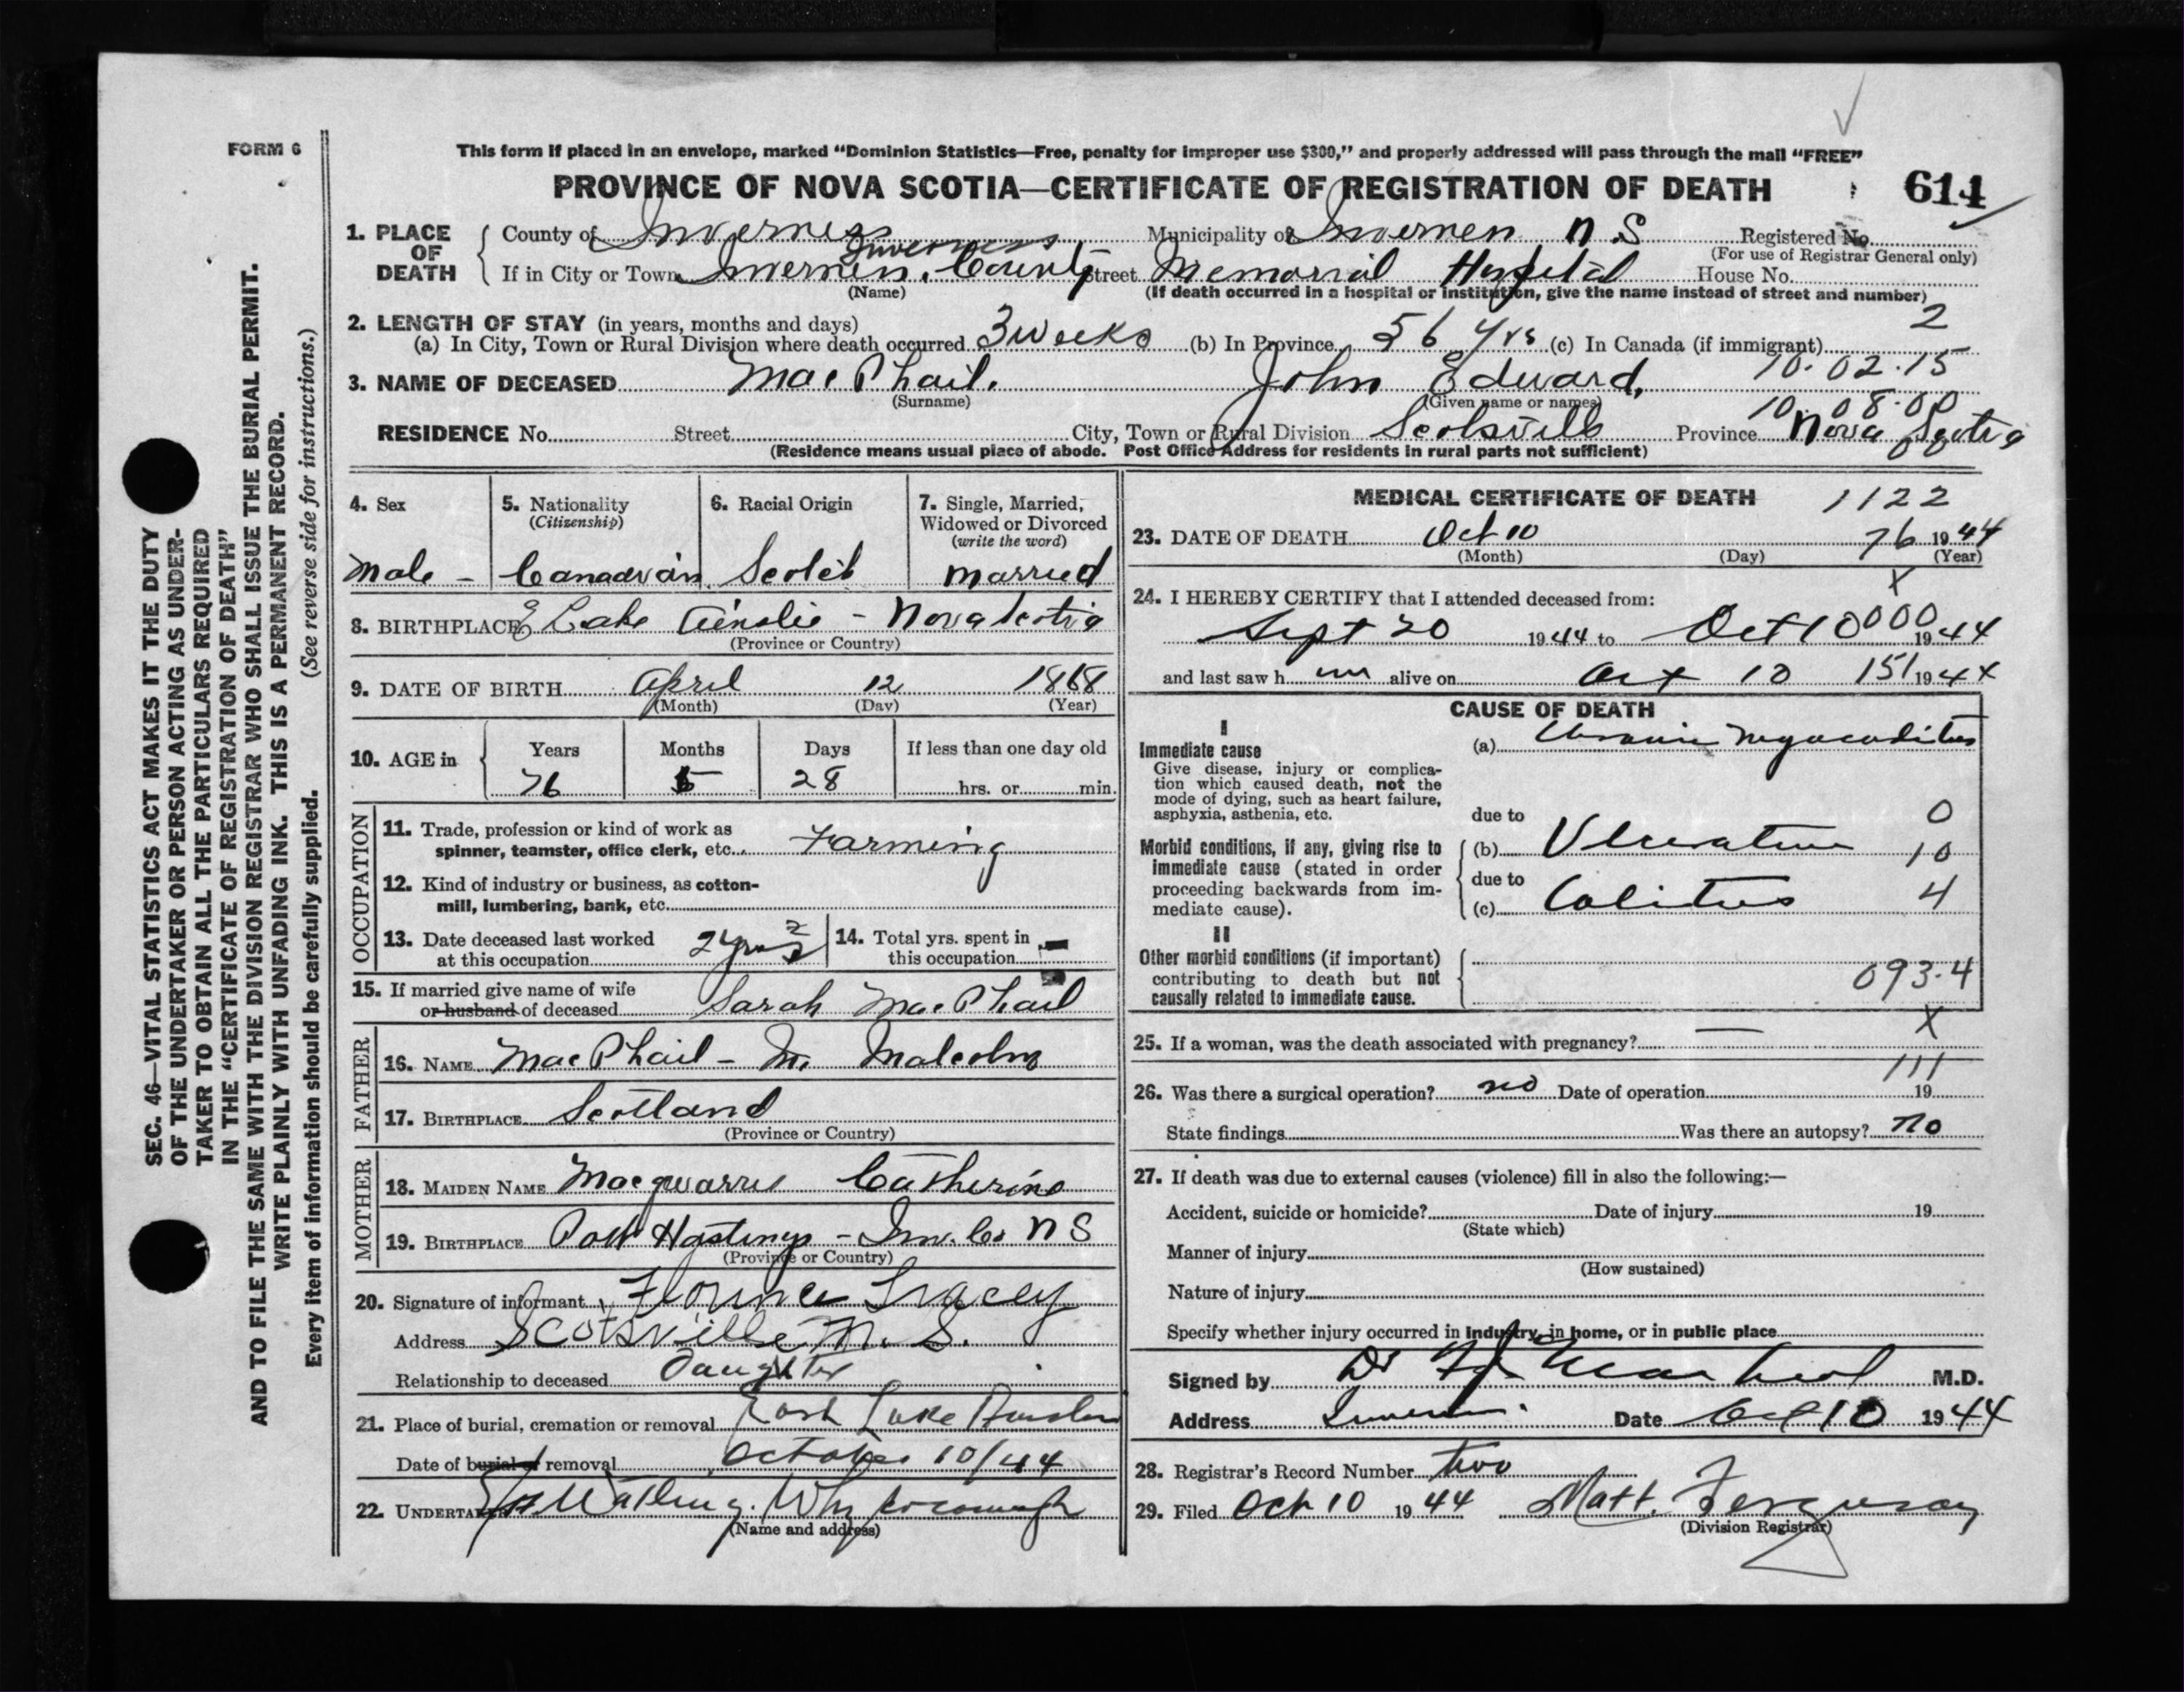 FORM 6
This form if placed in an envelope, marked "Dominion Statistics—Free, penalty for improper use $300," and properly addressed will pass through the mail "FREE"
PROVINCE OF NOVA SCOTIA—CERTIFICATE OF REGISTRATION OF DEATH 614
1. PLACE OF DEATH
County of Inverness Municipality of Inverness N.S Registered No.
(For use of Registrar General only)
Inverness
If in City or Town Inverness. County Street Memorial Hospital House No.
(Name) (If death occurred in a hospital or institution, give the name instead of street and number)
2. LENGTH OF STAY (in years, months and days) 2
(a) In City, Town or Rural Division where death occurred 3 weeks (b) In Province 56 yrs (c) In Canada (if immigrant)
10.02.15
3. NAME OF DECEASED MacPhail. John Edward,
(Surname) (Given name or names)
10.08.00
RESIDENCE No. Street City, Town or Rural Division Scotsville Province Nova Scotia
(Residence means usual place of abode. Post Office Address for residents in rural parts not sufficient)
4. Sex
Male -
5. Nationality
(Citizenship)
Canadian
6. Racial Origin
Scotch
7. Single, Married,
Widowed or Divorced
(write the word)
Married
8. BIRTHPLACE E Lake Ainslie - Nova Scotia
(Province or Country)
9. DATE OF BIRTH April 12 1868
(Month) (Day) (Year)
10. AGE in Years Months Days If less than one day old
76 5 28 hrs. or min.
OCCUPATION
11. Trade, profession or kind of work as
spinner, teamster, office clerk, etc. Farming
12. Kind of industry or business, as cotton-
mill, lumbering, bank, etc.
13. Date deceased last worked
at this occupation
14. Total yrs. spent in
this occupation —
15. If married give name of wife
or husband of deceased Sarah MacPhail
FATHER
16. NAME MacPhail - Malcolm
17. BIRTHPLACE Scotland
(Province or Country)
MOTHER
18. MAIDEN NAME Macquarrie Catherine
19. BIRTHPLACE Port Hastings - Inv. Co N S
(Province or Country)
20. Signature of informant Florence Tracey
Address Scotsville N. S.
Relationship to deceased Daughter
21. Place of burial, cremation or removal East Lake Ainslie
Date of burial or removal October 10/44
22. UNDERTAKER Watling. Whycocomagh
(Name and address)
MEDICAL CERTIFICATE OF DEATH 1122
23. DATE OF DEATH Oct 10 76 1944
(Month) (Day) (Year)
X
24. I HEREBY CERTIFY that I attended deceased from:
000
Sept 20 1944 to Oct 10 1944
and last saw h im alive on Oct 10 151 1944
CAUSE OF DEATH
I
Immediate cause
Give disease, injury or complica-
tion which caused death, not the
mode of dying, such as heart failure,
asphyxia, asthenia, etc.
(a) Chronic Myocarditis
due to 0
Morbid conditions, if any, giving rise to
immediate cause (stated in order
proceeding backwards from im-
mediate cause).
(b) Ulcerative 10
due to
(c) Colitis 4
II
Other morbid conditions (if important)
contributing to death but not
causally related to immediate cause.
093.4
X
25. If a woman, was the death associated with pregnancy? —
111
26. Was there a surgical operation? no Date of operation 19
State findings Was there an autopsy? no
27. If death was due to external causes (violence) fill in also the following:—
Accident, suicide or homicide? Date of injury 19
(State which)
Manner of injury
(How sustained)
Nature of injury
Specify whether injury occurred in industry, in home, or in public place
Signed by Dr M.D.
Address Inverness. Date Oct 10 1944
28. Registrar's Record Number two
29. Filed Oct 10 1944 Matt. Ferguson
(Division Registrar)
SEC. 46—VITAL STATISTICS ACT MAKES IT THE DUTY
OF THE UNDERTAKER OR PERSON ACTING AS UNDER-
TAKER TO OBTAIN ALL THE PARTICULARS REQUIRED
IN THE "CERTIFICATE OF REGISTRATION OF DEATH"
AND TO FILE THE SAME WITH THE DIVISION REGISTRAR WHO SHALL ISSUE THE BURIAL PERMIT.
WRITE PLAINLY WITH UNFADING INK. THIS IS A PERMANENT RECORD.
Every item of information should be carefully supplied. (See reverse side for instructions.)